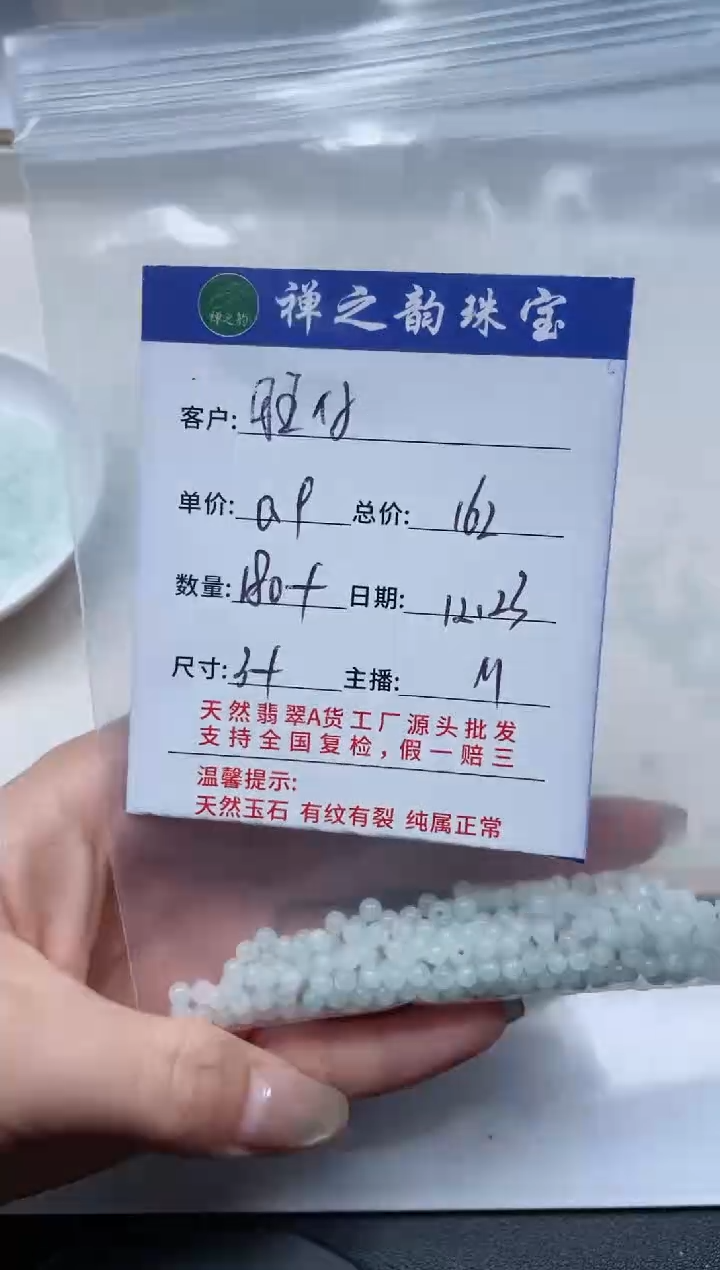 禅之韵 禅之韵珠宝
客户: 旺仔
单价: 0.9 总价: 162
数量: 180+ 日期: 12.23
尺寸: 3+ 主播: M
天然翡翠A货工厂源头批发
支持全国复检，假一赔三
温馨提示:
天然玉石 有纹有裂 纯属正常